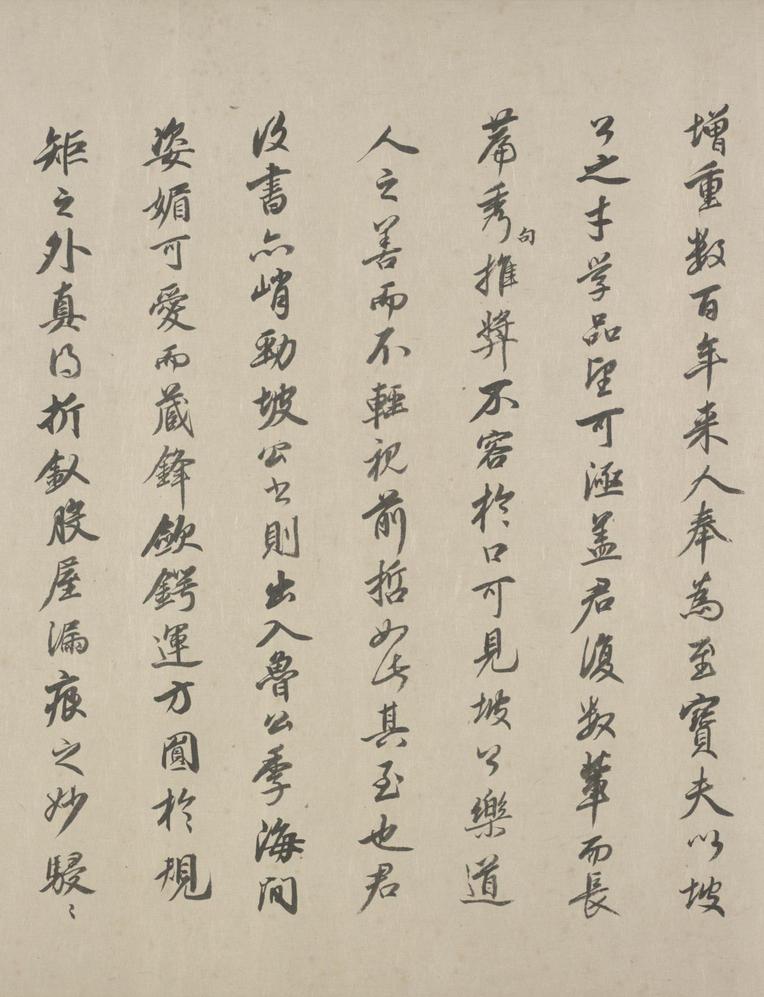 增重数百年来人奉為至寶夫以坡
公之才学品望可涵盖君復数輩而長
篇秀句推奬不容於口可見坡公樂道
人之善而不輕視前哲如此其至也君
復書亦峭勁坡公書則出入魯公季海間
姿媚可愛而蔵鋒歛鍔運方圓於規
矩之外真得折釵股屋漏痕之妙駸〻